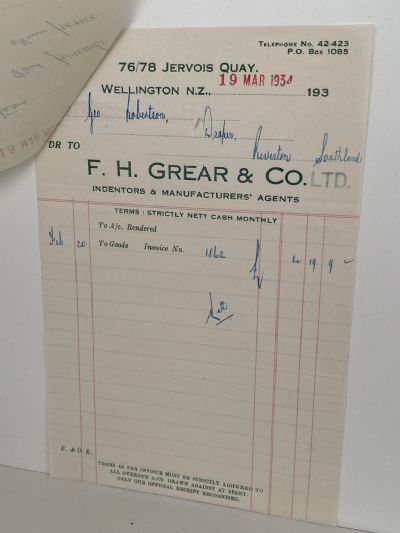 TELEPHONE NO. 42-423
P.O. BOX 1085
76/78 JERVOIS QUAY.
WELLINGTON N.Z., 19 MAR 1934 193
Geo Robertson,
Draper,
Riverton Southland
DR TO
F. H. GREAR & CO. LTD.
INDENTORS & MANUFACTURERS' AGENTS
TERMS: STRICTLY NETT CASH MONTHLY
To A/c. Rendered
Feb 20 To Goods Invoice No. 1862 £ 4 19 9
Nett
E. & O. E.
TERMS AS PER INVOICE MUST BE STRICTLY ADHERED TO
ALL OVERDUE A/CS. DRAWN AGAINST AT SIGHT.
ONLY OUR OFFICIAL RECEIPT RECOGNISED.